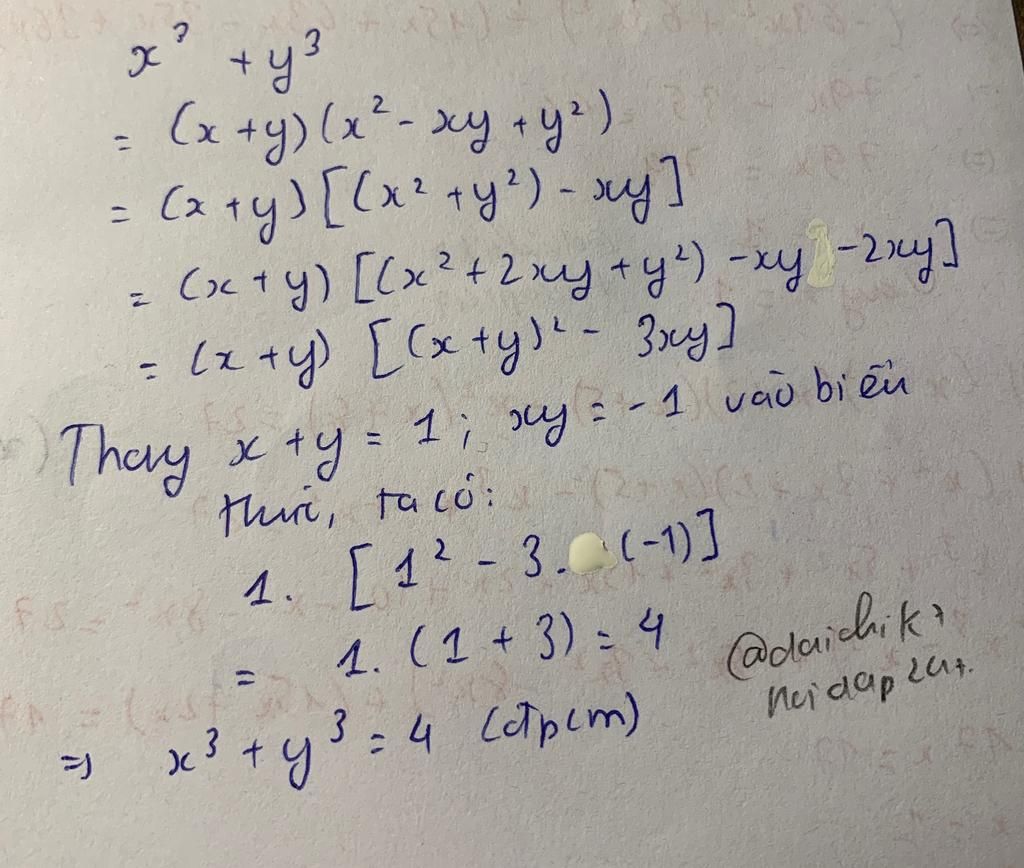 x³ + y³
= (x + y)(x² - xy + y²)
= (x + y)[(x² + y²) - xy]
= (x + y)[(x² + 2xy + y²) - xy - 2xy]
= (x + y)[(x + y)² - 3xy]
Thay x + y = 1; xy = -1 vào biểu
thức, ta có:
1. [1² - 3.(-1)]
= 1. (1 + 3) = 4
@daichik7
=> x³ + y³ = 4 (đpcm)